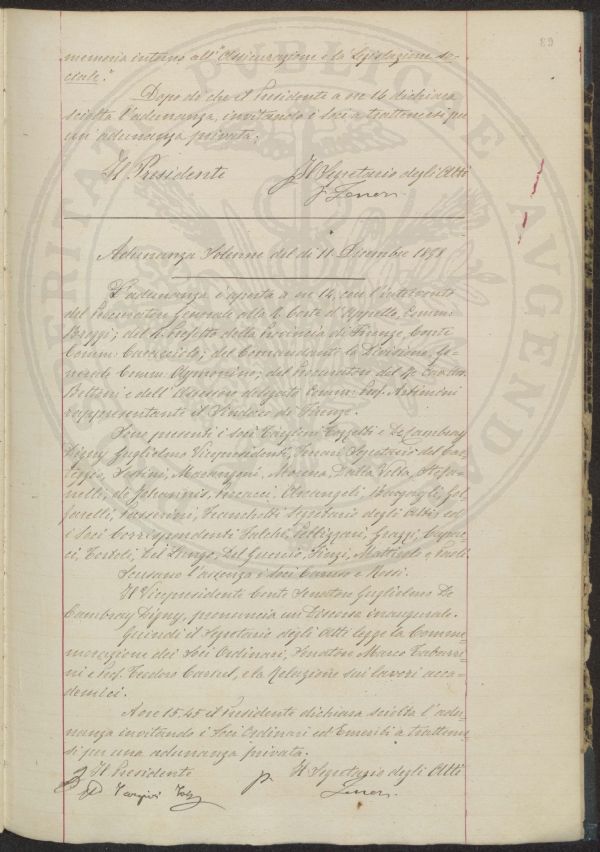 89
memoria intorno all'"Assicurazione e la Legislazione so-
ciale".
Dopo di che il Presidente a ore 16 dichiara
sciolta l'adunanza, invitando i soci a trattenersi per
un'adunanza privata;
Il Presidente Il Segretario degli Atti
Adunanza Solenne del dì 11 Dicembre 1898
L'adunanza è aperta a ore 14, con l'intervento
del Procuratore Generale alla R. Corte d'Appello, Comm.
del R. Prefetto della Provincia di Firenze, Conte
Comm. Caracciolo; del Comandante la Divisione, Ge-
nerale Comm. Aymonino; del Procuratore del Re Cav.
Bettini e dell'Assessore delegato Comm. Prof. Artimini
rappresentante il Sindaco di Firenze.
Sono presenti i soci Targioni Tozzetti e De Cambray
Digny Guglielmo Vicepresidenti, Segretario del Car-
teggio, Marangoni, Morena, Dalla Volta, Stefa-
nelli, de Johannis, Pucacci, Arcangeli, Bargagli, Gol-
farelli, Passerini, Franchetti Segretario degli Atti, ed
i Soci Corrispondenti Falchi, Pellizzari, Grazzi, Capac-
ci, Tortoli, Del Lungo, Del Guercio, Mattirolo e Paoli
Scusano l'assenza i soci Caruso e Rossi.
Il Vicepresidente Conte Senatore Guglielmo De
Cambray Digny, pronuncia un Discorso inaugurale.
Quindi il Segretario degli Atti legge la Comme
morazione dei Soci Ordinari, Senatore Marco Tabarri-
ni e Prof. Teodoro Caruel, e la Relazione sui lavori acca-
demici.
A ore 15.45 il Presidente dichiara sciolta l'adu-
nanza invitando i Soci Ordinari ed Emeriti a trattener
si per una adunanza privata.
Il Presidente p. Il Segretario degli Atti